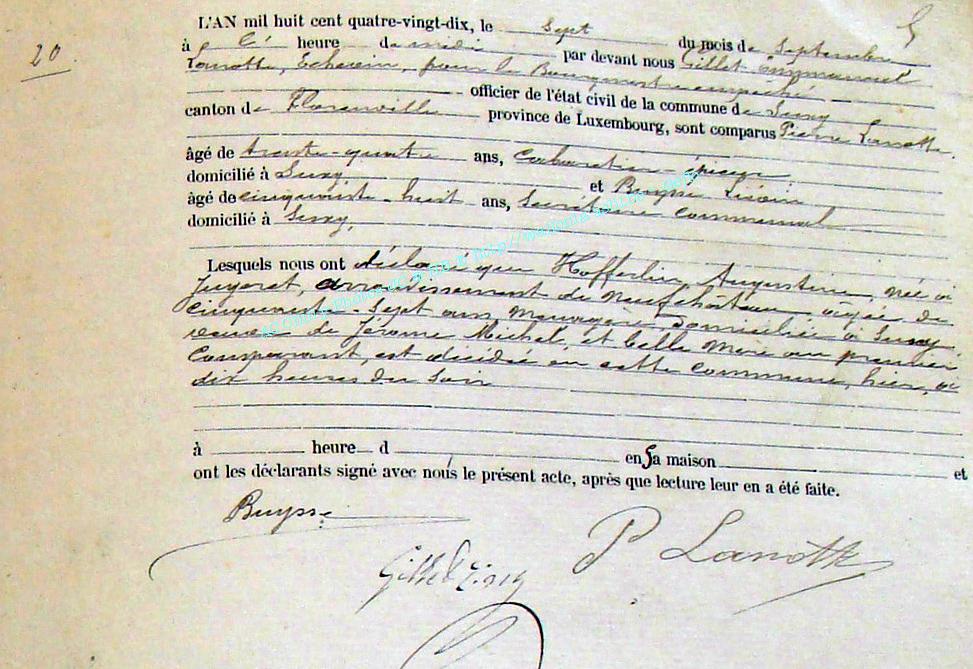 20
L'AN mil huit cent quatre-vingt-dix, le sept du mois de Septembre
à heure de midi par devant nous Gillet Emmanuel
Lanotte, Echevin, pour le Bourgmestre empêché
officier de l'état civil de la commune de Suxy
canton de Florenville province de Luxembourg, sont comparus Pierre Lanotte
âgé de trente-quatre ans, Cabaretier-épicier
domicilié à Suxy et Buysse
âgé de cinquante-huit ans, Secrétaire communal
domicilié à Suxy,
Lesquels nous ont déclaré que Hofferlin, Augustine, née à
Juseret, arrondissement de Neufchâteau, âgée de
cinquante-sept ans, ménagère, domiciliée à Suxy
veuve de Jérome Michel, et belle mère au premier
Comparant, est décédée en cette commune, hier, à
dix heures du soir
à heure d en sa maison et
ont les déclarants signé avec nous le présent acte, après que lecture leur en a été faite.
Buysse
P Lanotte